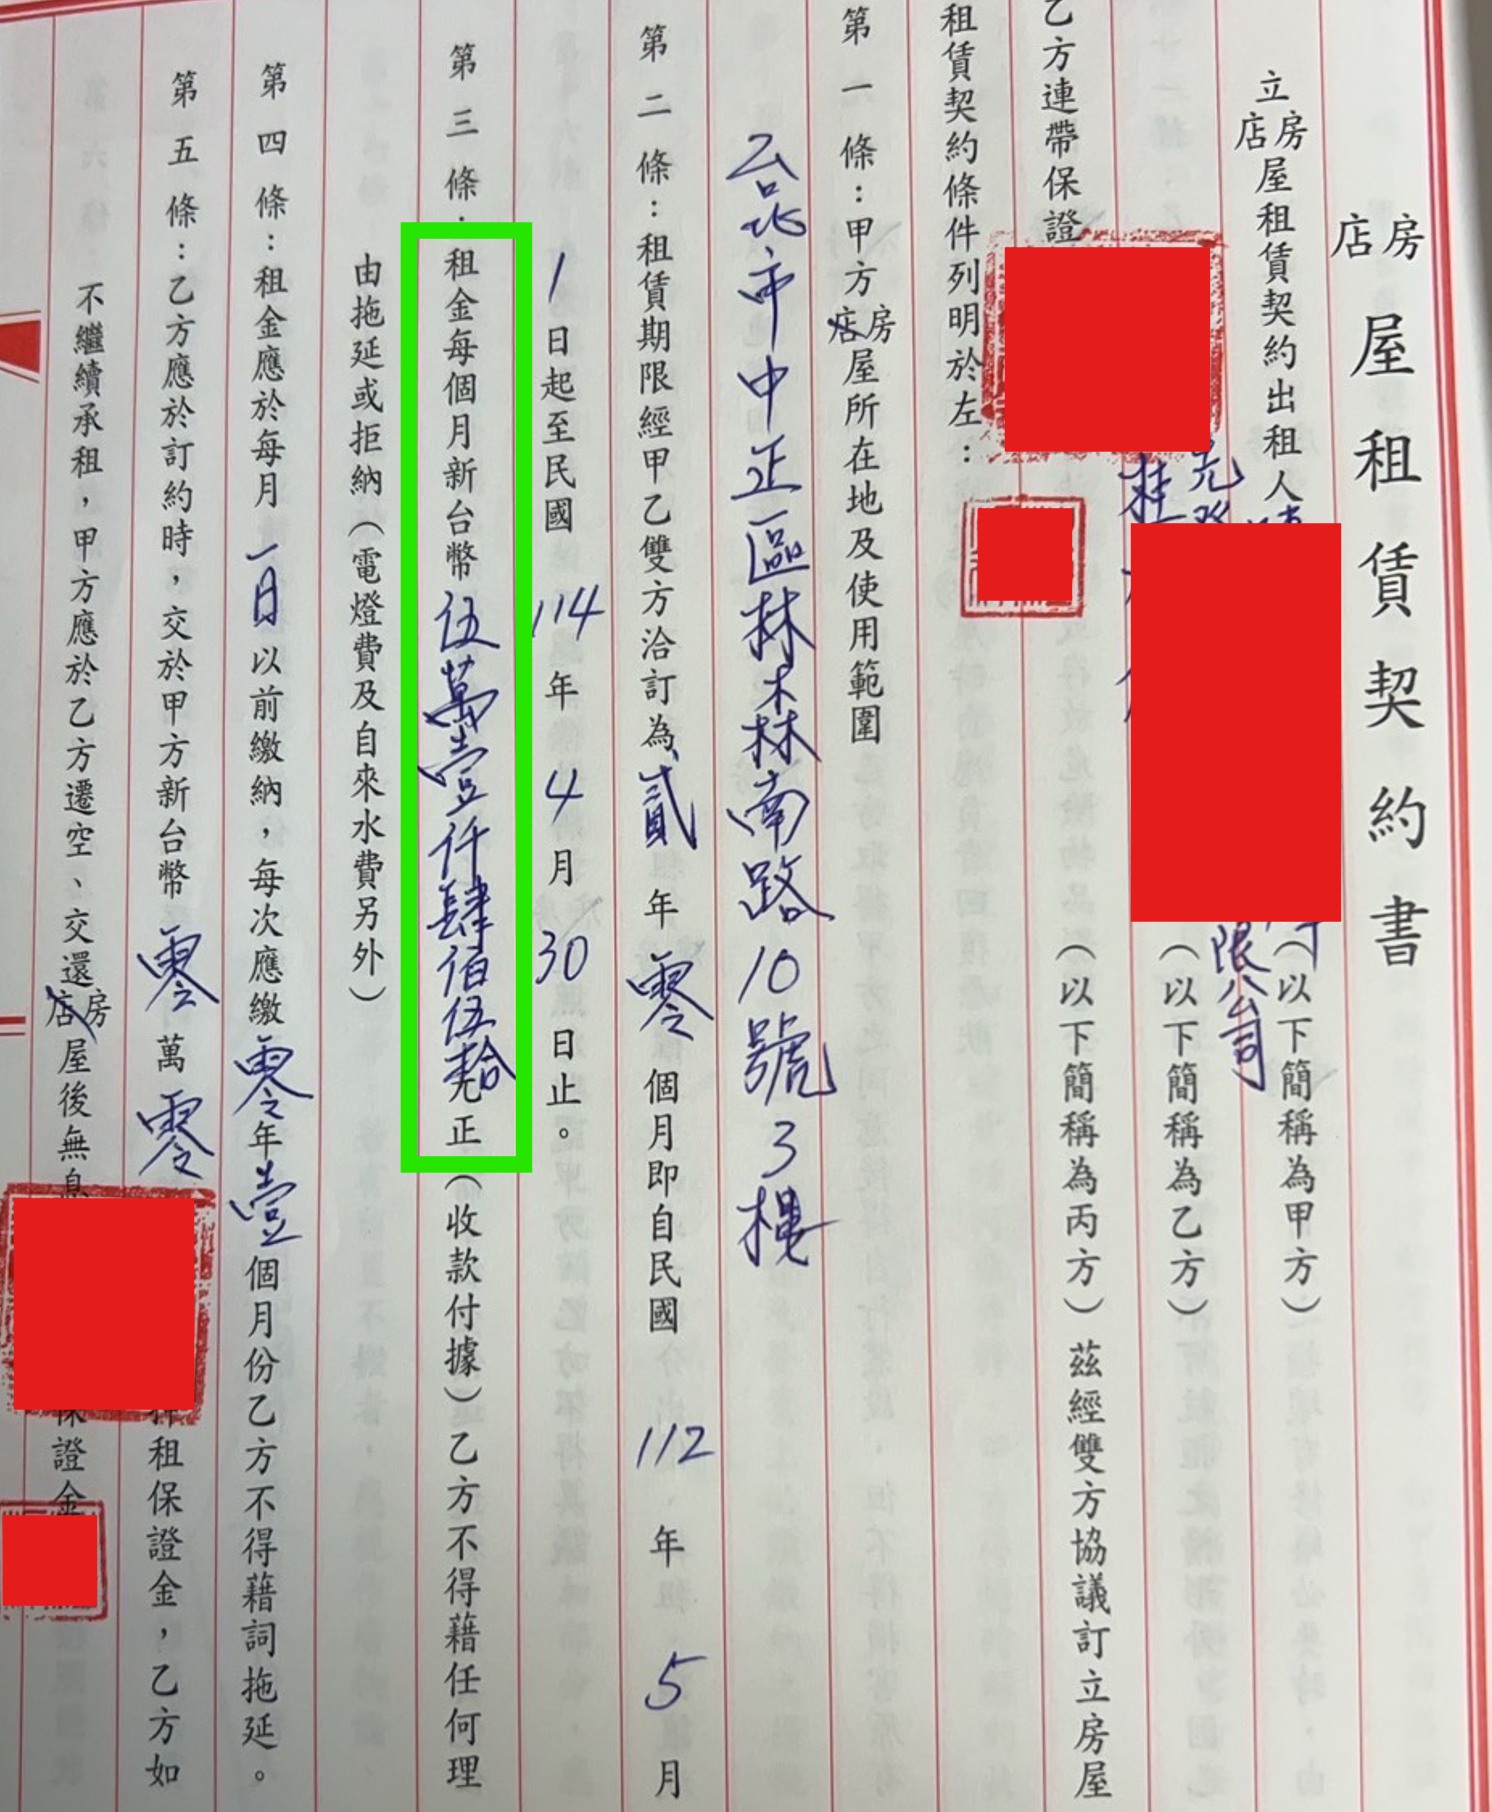 店房屋租賃契約書
立店房屋租賃契約出租人(以下簡稱為甲方)
限公司(以下簡稱為乙方)
乙方連帶保證(以下簡稱為丙方)茲經雙方協議訂立房屋
租賃契約條件列明於左:
第一條:甲方店房屋所在地及使用範圍
台北市中正區林森南路10號3樓
第二條:租賃期限經甲乙雙方洽訂為貳年零個月即自民國112年5月
1日起至民國114年4月30日止。
第三條:租金每個月新台幣伍萬壹仟肆佰伍拾元正(收款付據)乙方不得藉任何理
由拖延或拒納(電燈費及自來水費另外)
第四條:租金應於每月一日以前繳納,每次應繳零年壹個月份乙方不得藉詞拖延。
第五條:乙方應於訂約時,交於甲方新台幣零萬零租保證金,乙方如
不繼續承租,甲方應於乙方遷空、交還店房屋後無息保證金